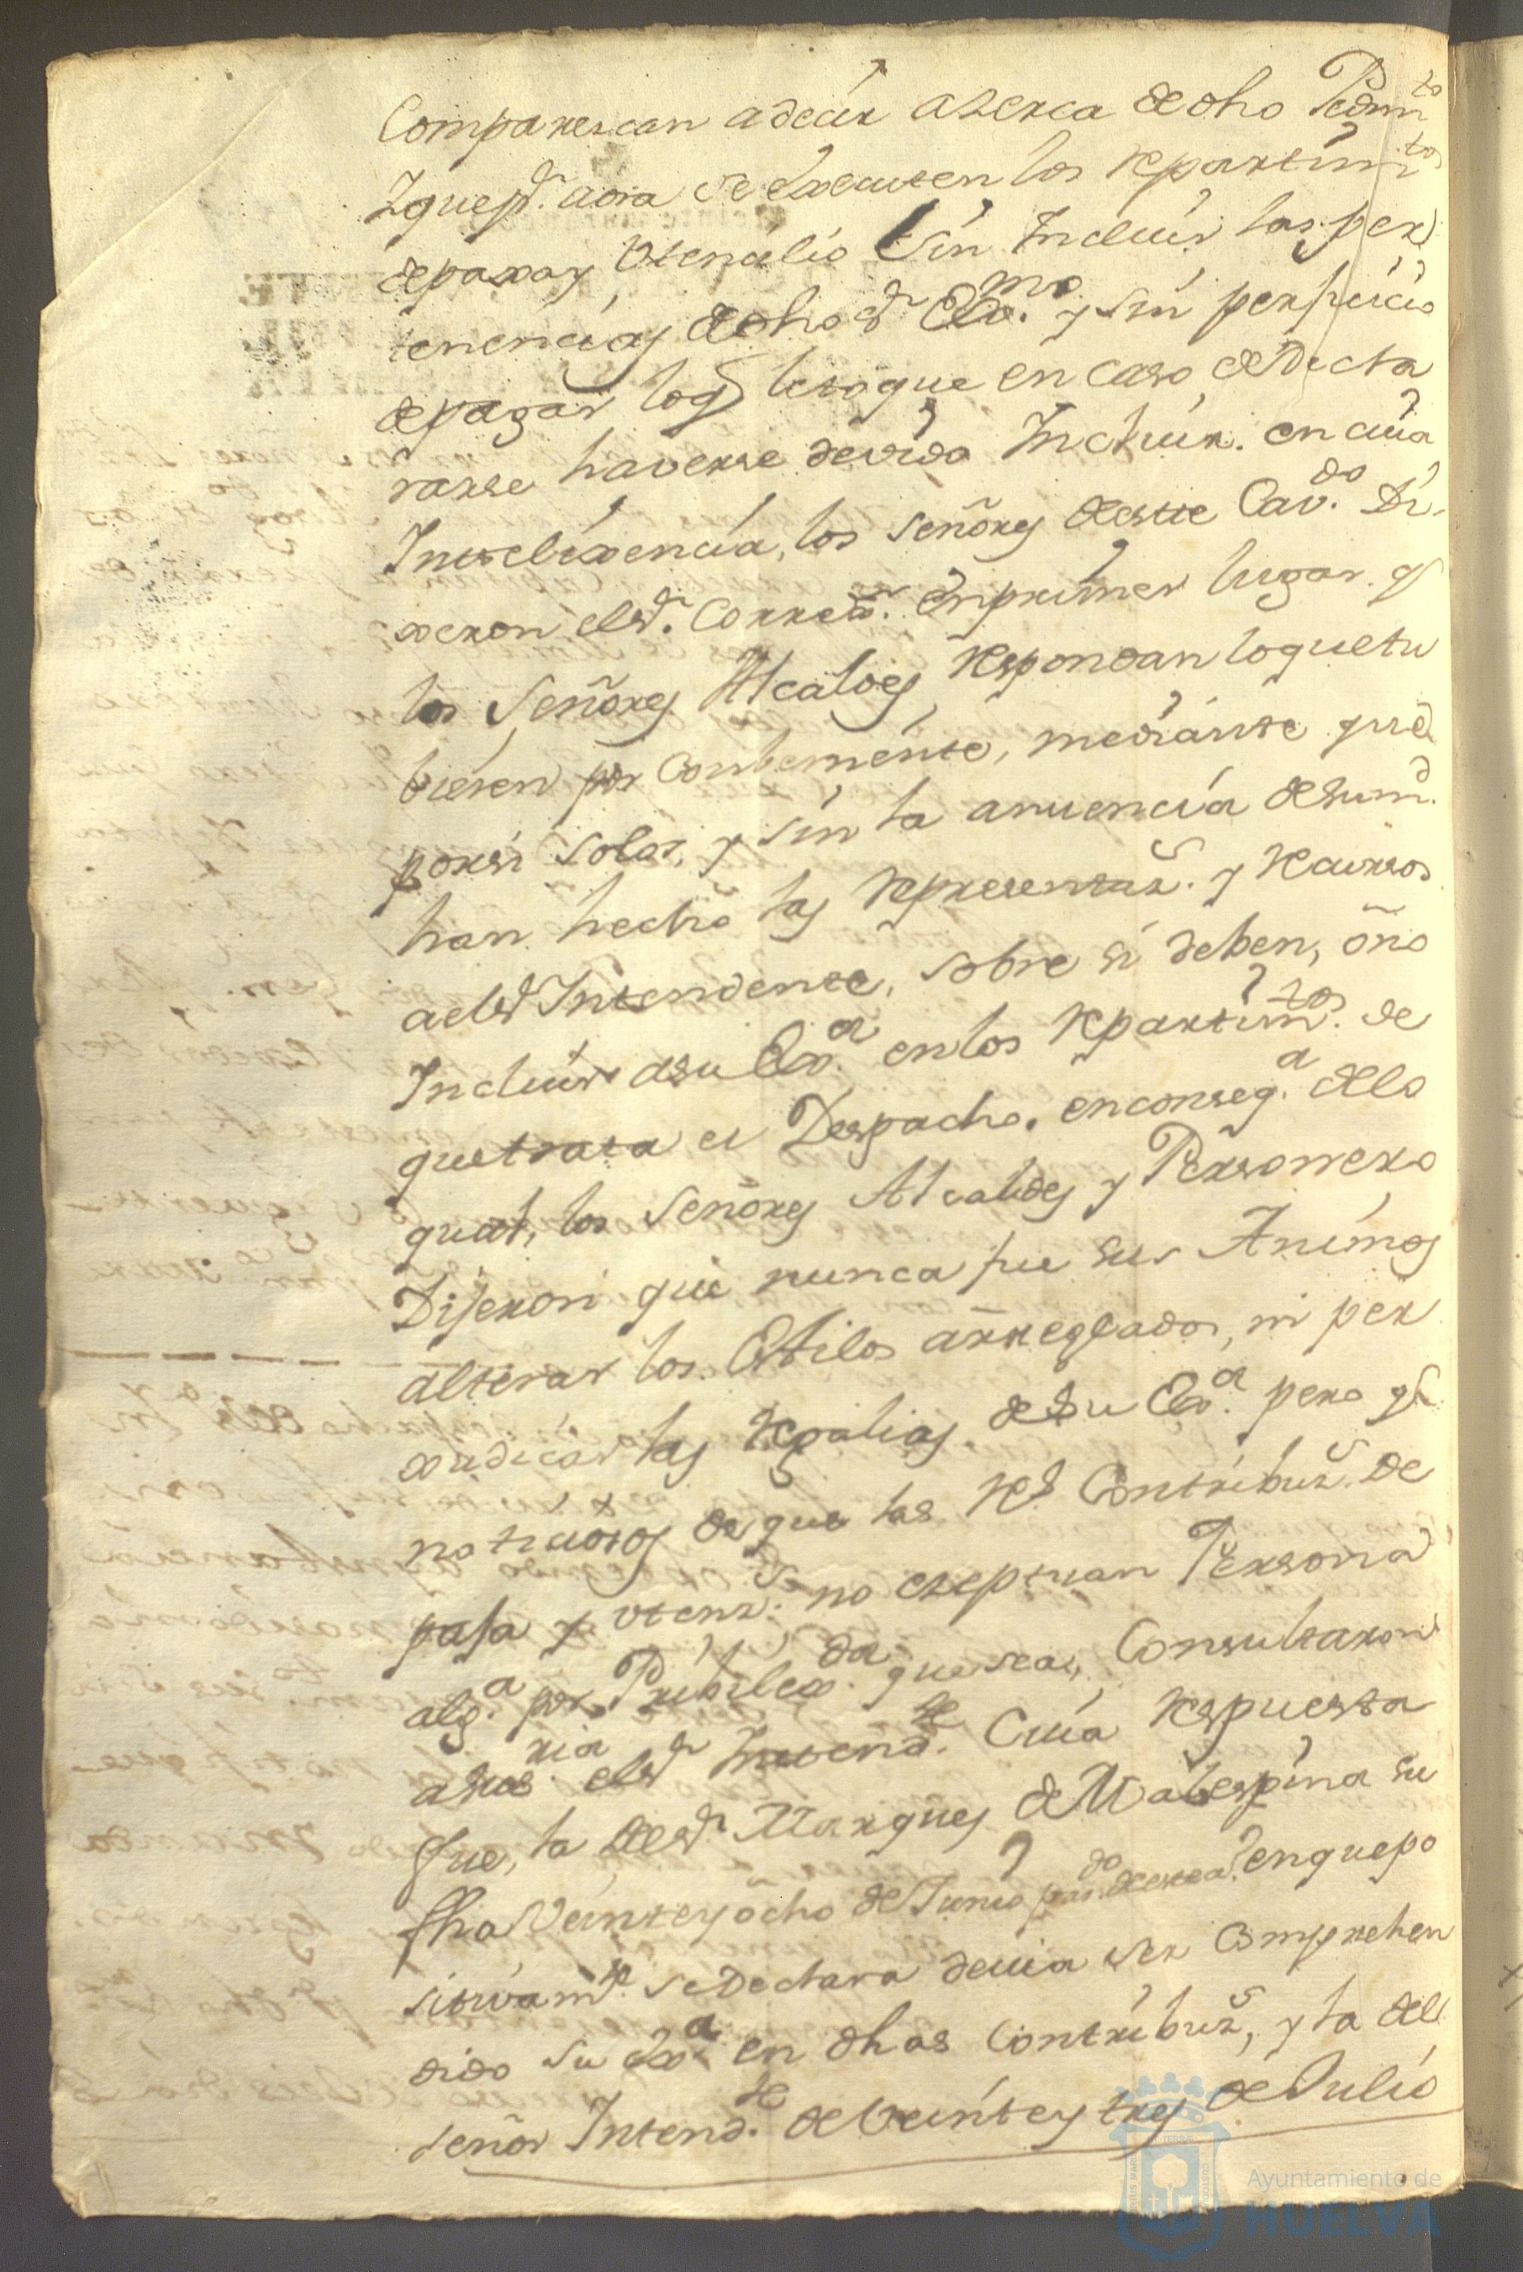 Comparescan a decir aserca de dho Pedim.to
Y que p.r aora se executen los repartim.tos
de paxa y Utencilio sin Incluir las per
tenencias de dho S.r Ex.mo y sin perjuicio
de pagar lo q.e le toque en caso de Decla
rarse haverse devido Incluir. en cuia
Intelixencia, los señores de este Cav.do Di-
xeron el S.r Correx.r en primer lugar q.e
los Señores Alcaldes respondan lo que tu
bieren por combeniente, mediante que
por si solos, y sin la anuencia de su m.d
han hecho las representaz.s y recursos
a el S.r Intendente, sobre si deben, ò no
Incluir a su Ex.a en los repartim.tos de
que trata el Despacho. en conseq.a de lo
qual, los Señores Alcaldes y Personero
Dijeron que nunca fue sus Animos
alterar los Estilos arreglados, ni per
xudicar las regalias de su Ex.a pero q.e
noticiosos de que las R.s Contribuz.s de
paja y utenz.s no exeptuan Persona
alg.a por Pribilexia.da que sea, Consultaron
a sus el S.r Intend.te Cuia respuesta
fue, la del S.r Marques de Malespina su
fha Veinte y ocho de Junio pas.do de este a.o en que po
sitivam.te se Declara devia ser Comprehen
dido su Ex.a en dhas Contribuz.s, y la del
señor Intend.te de veinte y tres de Julio
Ayuntamiento de
HUELVA